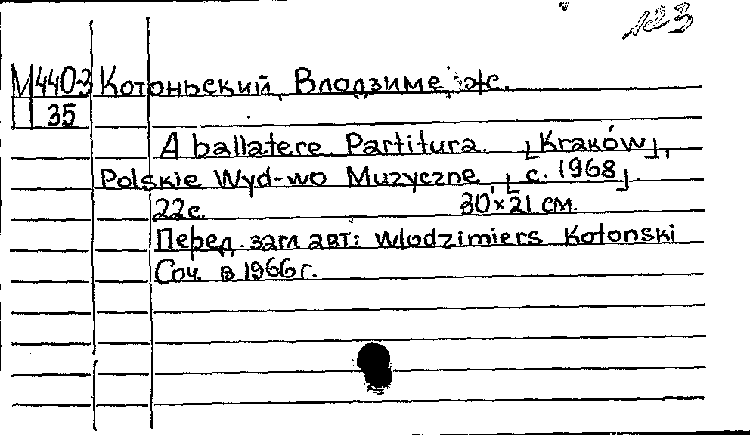 123
М4403 Котоньский, Влодзимеж.
35
A ballatere Partitura. [Kraków],
Polskie Wyd-wo Muzyczne, [c. 1968].
22с. 30×21 см.
Перед загл авт: Wlodzimiers Kotonski
Соч. в 1966г.